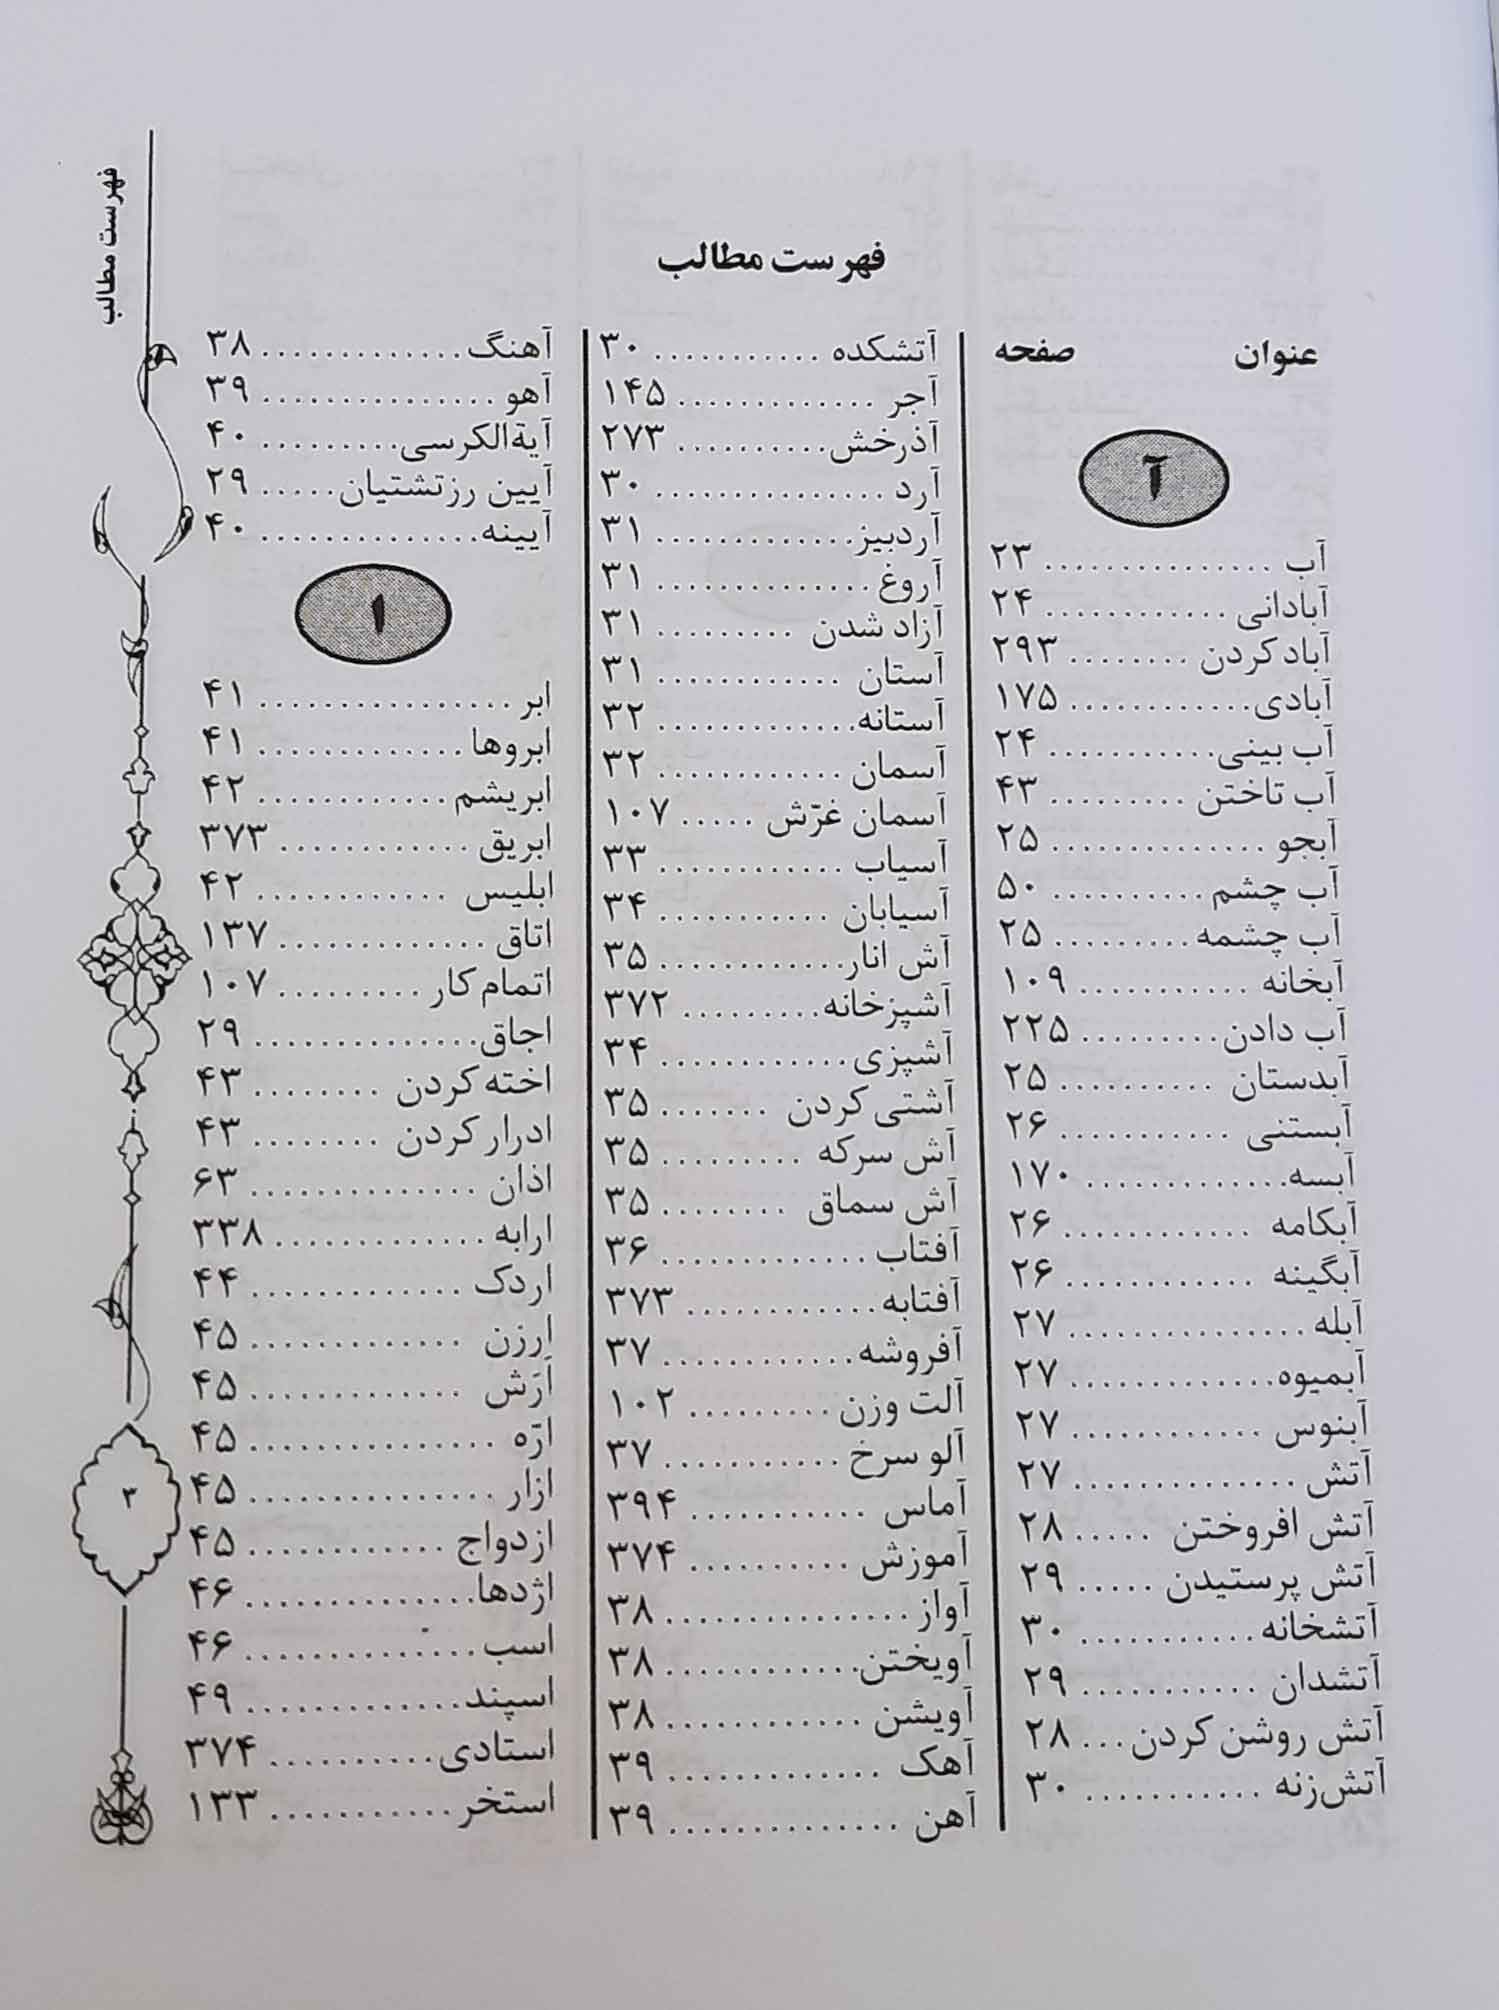 فهرست مطالب
فهرست مطالب
عنوان صفحه
آ
آب ............... ۲۳
آبادانی ............ ۲۴
آباد کردن ........ ۲۹۳
آبادی ............ ۱۷۵
آب بینی ........... ۲۴
آب تاختن ......... ۴۳
آبجو .............. ۲۵
آب چشم .......... ۵۰
آب چشمه ......... ۲۵
آبخانه ........... ۱۰۹
آب دادن ......... ۲۲۵
آبدستان .......... ۲۵
آبستنی ........... ۲۶
آبسه ............. ۱۷۰
آبکامه ............ ۲۶
آبگینه ............ ۲۶
آبله ............... ۲۷
آبمیوه ............. ۲۷
آبنوس ............ ۲۷
آتش .............. ۲۷
آتش افروختن ..... ۲۸
آتش پرستیدن ..... ۲۹
آتشخانه ........... ۳۰
آتشدان ........... ۲۹
آتش روشن کردن ... ۲۸
آتش‌زنه ........... ۳۰
آتشکده ........... ۳۰
آجر ............. ۱۴۵
آذرخش .......... ۲۷۳
آرد ............... ۳۰
آردبیز ............. ۳۱
آروغ .............. ۳۱
آزاد شدن ......... ۳۱
آستان ............ ۳۱
آستانه ............. ۳۲
آسمان ............ ۳۲
آسمان غرّش ..... ۱۰۷
آسیاب ............ ۳۳
آسیابان ........... ۳۴
آش انار ............ ۳۵
آشپزخانه ......... ۳۷۲
آشپزی ............ ۳۴
آشتی کردن ....... ۳۵
آش سرکه ......... ۳۵
آش سماق ........ ۳۵
آفتاب ............. ۳۶
آفتابه ............ ۳۷۳
آفروشه ............ ۳۷
آلت وزن ......... ۱۰۲
آلو سرخ ........... ۳۷
آماس ........... ۳۹۴
آموزش .......... ۳۷۴
آواز ................ ۳۸
آویختن ............. ۳۸
آویشن ............ ۳۸
آهک ............. ۳۹
آهن .............. ۳۹
آهنگ ............. ۳۸
آهو ............... ۳۹
آیةالکرسی ......... ۴۰
آیین رزتشتیان ..... ۲۹
آیینه .............. ۴۰
ا
ابر ................ ۴۱
ابروها ............. ۴۱
ابریشم ............ ۴۲
ابریق ............ ۳۷۳
ابلیس ............ ۴۲
اتاق ............. ۱۳۷
اتمام کار ......... ۱۰۷
اجاق .............. ۲۹
اخته کردن ........ ۴۳
ادرار کردن ........ ۴۳
اذان .............. ۶۳
ارابه ............. ۳۳۸
اردک ............. ۴۴
ارزن .............. ۴۵
اَرَش .............. ۴۵
ارّه ................ ۴۵
ازار ................ ۴۵
ازدواج ............ ۴۵
اژدها .............. ۴۶
اسب .............. ۴۶
اسپند ............. ۴۹
استادی .......... ۳۷۴
استخر ........... ۱۳۳
۳